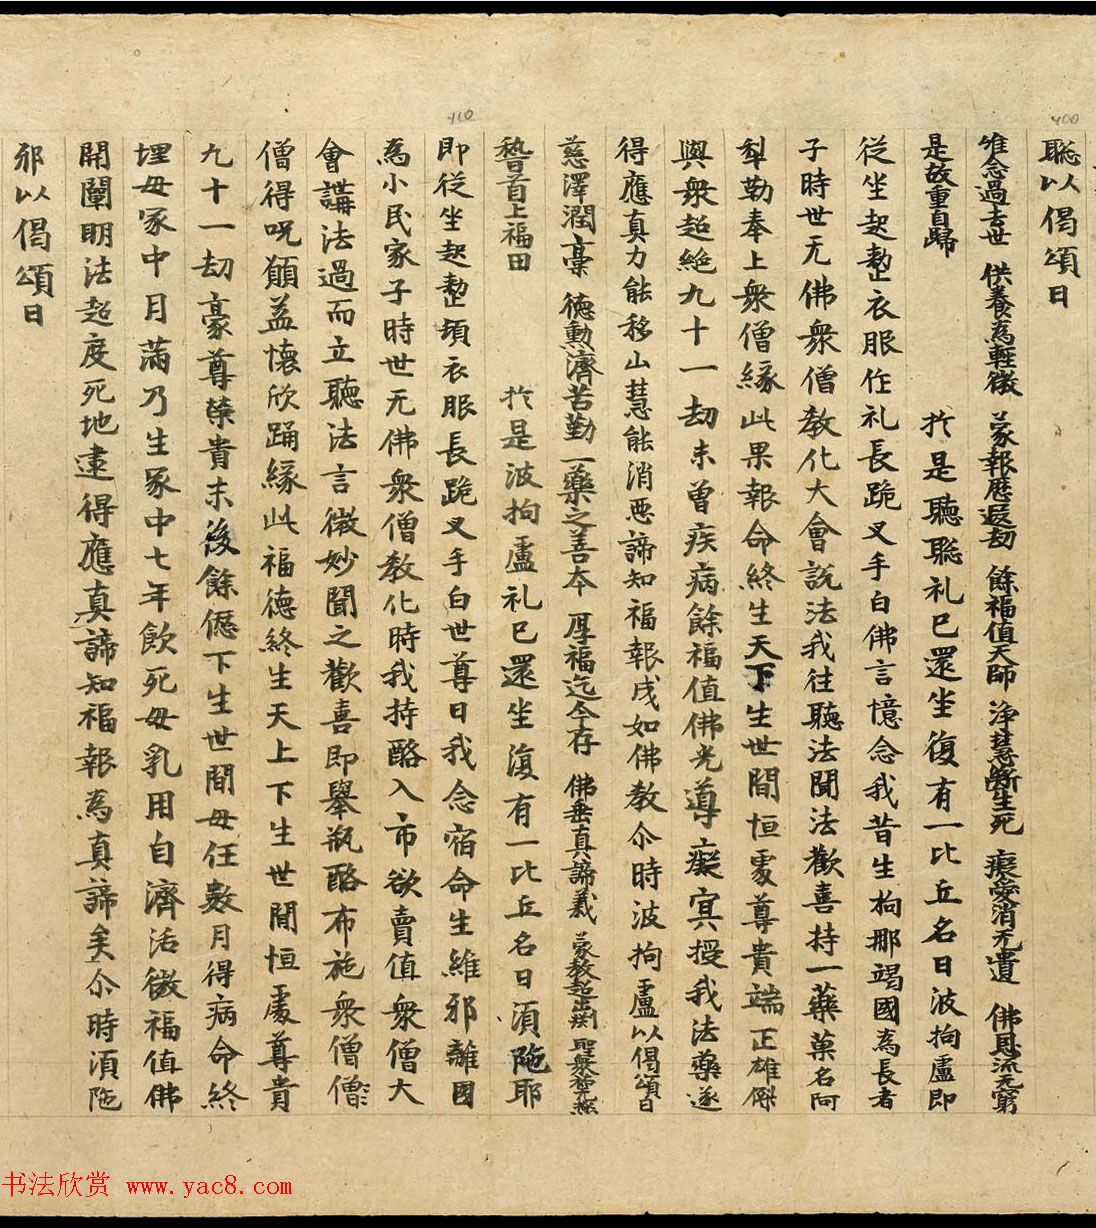 聡以偈頌曰
惟念過去世 供養為輕微 蒙報歷遐劫 餘福值天師 淨慧斷生死 癡愛消无遺 佛恩流无窮
是故重自歸
於是聽聡礼已還坐復有一比丘名曰波拘盧即
從坐起整衣服作礼長跪叉手白佛言憶念我昔生拘那竭國為長者
子時世无佛衆僧教化大會說法我往聽法聞法歡喜持一藥菓名阿
梨勒奉上衆僧緣此果報命終生天下生世間恒處尊貴端正雄傑
與衆超絶九十一劫未曾疾病餘福值佛光導癡冥授我法藥遂
得應真力能移山慧能消惡諦知福報咸如佛教尒時波拘盧以偈頌曰
慈澤潤槀 德勲濟苦勤 一藥之善本 厚福迄今存 佛垂真諦義 蒙教超出淵 聖衆
稽首上福田
於是波拘盧礼已還坐復有一比丘名曰須陁耶
即從坐起整頓衣服長跪叉手白世尊曰我念宿命生維邪離國
為小民家子時世无佛衆僧教化時我持酪入市欲賣值衆僧大
會講法過而立聽法言微妙聞之歡喜即舉瓶酪布施衆僧僧
僧得呪願益懷欣踊緣此福德終生天上下生世間恒處尊貴
九十一劫豪尊榮貴末後餘愆下生世間母任數月得病命終
埋母冢中月滿乃生冢中七年飲死母乳用自濟活微福值佛
開闡明法超度死地逮得應真諦知福報為真諦矣尒時須陁
邪以偈頌曰
400
410
书法欣赏 www.yac8.com